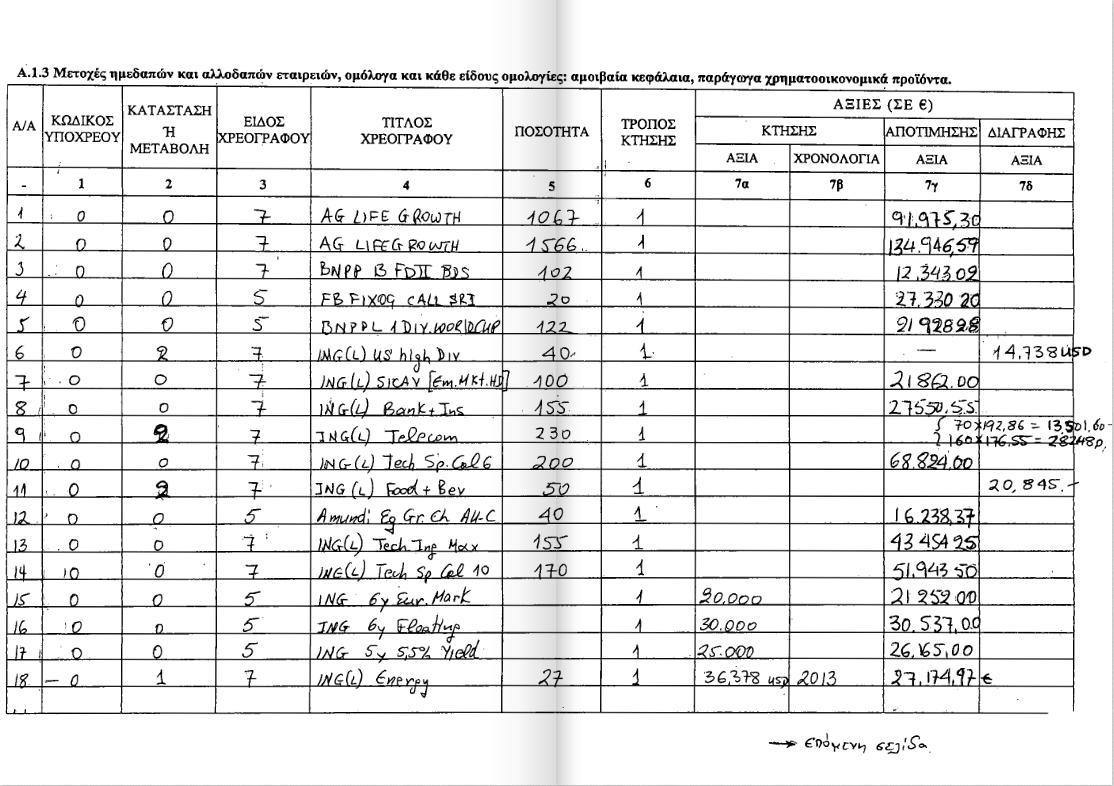 Α.1.3 Μετοχές ημεδαπών και αλλοδαπών εταιρειών, ομόλογα και κάθε είδους ομολογίες: αμοιβαία κεφάλαια, παράγωγα χρηματοοικονομικά προϊόντα.
Α/Α ΚΩΔΙΚΟΣ ΥΠΟΧΡΕΟΥ ΚΑΤΑΣΤΑΣΗ Ή ΜΕΤΑΒΟΛΗ ΕΙΔΟΣ ΧΡΕΟΓΡΑΦΟΥ ΤΙΤΛΟΣ ΧΡΕΟΓΡΑΦΟΥ ΠΟΣΟΤΗΤΑ ΤΡΟΠΟΣ ΚΤΗΣΗΣ ΑΞΙΕΣ (ΣΕ €)
ΚΤΗΣΗΣ ΑΠΟΤΙΜΗΣΗΣ ΔΙΑΓΡΑΦΗΣ
ΑΞΙΑ ΧΡΟΝΟΛΟΓΙΑ ΑΞΙΑ ΑΞΙΑ
- 1 2 3 4 5 6 7α 7β 7γ 7δ
1 0 0 7 AG LIFE GROWTH 1067 1 91.975,30
2 0 0 7 AG LIFE GROWTH 1566 1 134.946,59
3 0 0 7 BNPP B FDII BDS 102 1 12.343 02
4 0 0 5 FB FIX09 CALL SRI 20 1 27.330 20
5 0 0 5 BNPPL 1 DIV.WORLD CUP 122 1 21 928 28
6 0 2 7 ING(L) US high Div 40 1 — 14,738 USD
7 0 0 7 ING(L) SICAV [Em.Mkt.HD] 100 1 21862.00
8 0 0 7 ING(L) Bank+Ins 155 1 27550.55
9 0 2 7 ING(L) Telecom 230 1 { 70×192,86 = 13,501.60-
{ 160×176,55 = 28248
10 0 0 7 ING(L) Tech Sp.Cal 6 200 1 68.824.00
11 0 2 7 ING(L) Food + Bev 50 1 20,845.-
12 0 0 5 Amundi Eq Gr. Ch AU-C 40 1 16.238,37
13 0 0 7 ING(L) Tech Inp Max 155 1 43 454 25
14 0 0 7 ING(L) Tech Sp Cal 10 170 1 51.943 50
15 0 0 5 ING 6y Eur. Mark 1 20.000 21 252 00
16 0 0 5 ING 6y Floating 1 30.000 30.537,00
17 0 0 5 ING 5y 5,5% Yield 1 25.000 26,165,00
18 – 0 1 7 ING(L) Energy 27 1 36,378 USD 2013 27,174,97 €
→ επόμενη σελίδα